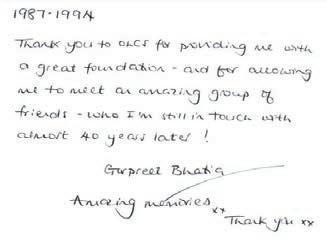 1987-1994
Thank you to OLCS for providing me with
a great foundation - and for allowing
me to meet an amazing group of
friends - who I'm still in touch with
almost 40 years later !
Gurpreet Bhatia
Amazing memories xx
Thank you xx